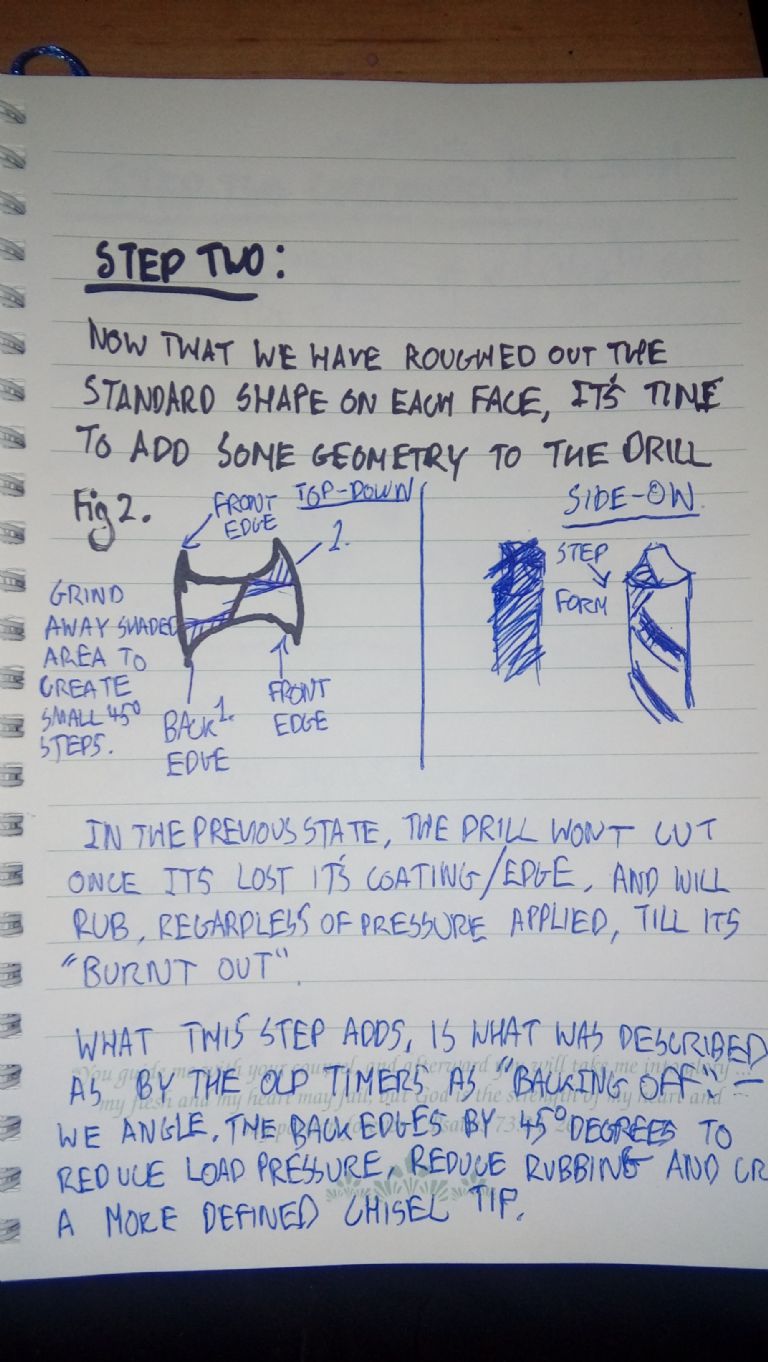 STEP TWO:
NOW THAT WE HAVE ROUGHED OUT THE
STANDARD SHAPE ON EACH FACE, IT'S TIME
TO ADD SOME GEOMETRY TO THE DRILL
Fig 2.
FRONT
EDGE
TOP-DOWN
1.
GRIND
AWAY SHADED
AREA TO
CREATE
SMALL 45°
STEPS.
BACK 1.
EDGE
FRONT
EDGE
SIDE-ON
STEP
FORM
IN THE PREVIOUS STATE, THE DRILL WONT CUT
ONCE ITS LOST IT'S COATING/EDGE, AND WILL
RUB, REGARDLESS OF PRESSURE APPLIED, TILL ITS
"BURNT OUT".
WHAT THIS STEP ADDS, IS WHAT WAS DESCRIBED
AS BY THE OLD TIMERS AS "BACKING OFF" -
WE ANGLE. THE BACK EDGES BY 45° DEGREES TO
REDUCE LOAD PRESSURE, REDUCE RUBBING AND CR
A MORE DEFINED CHISEL TIP.
You guide me with your counsel, and afterward you will take me into glory ...
my flesh and my heart may fail, but God is the strength of my heart and